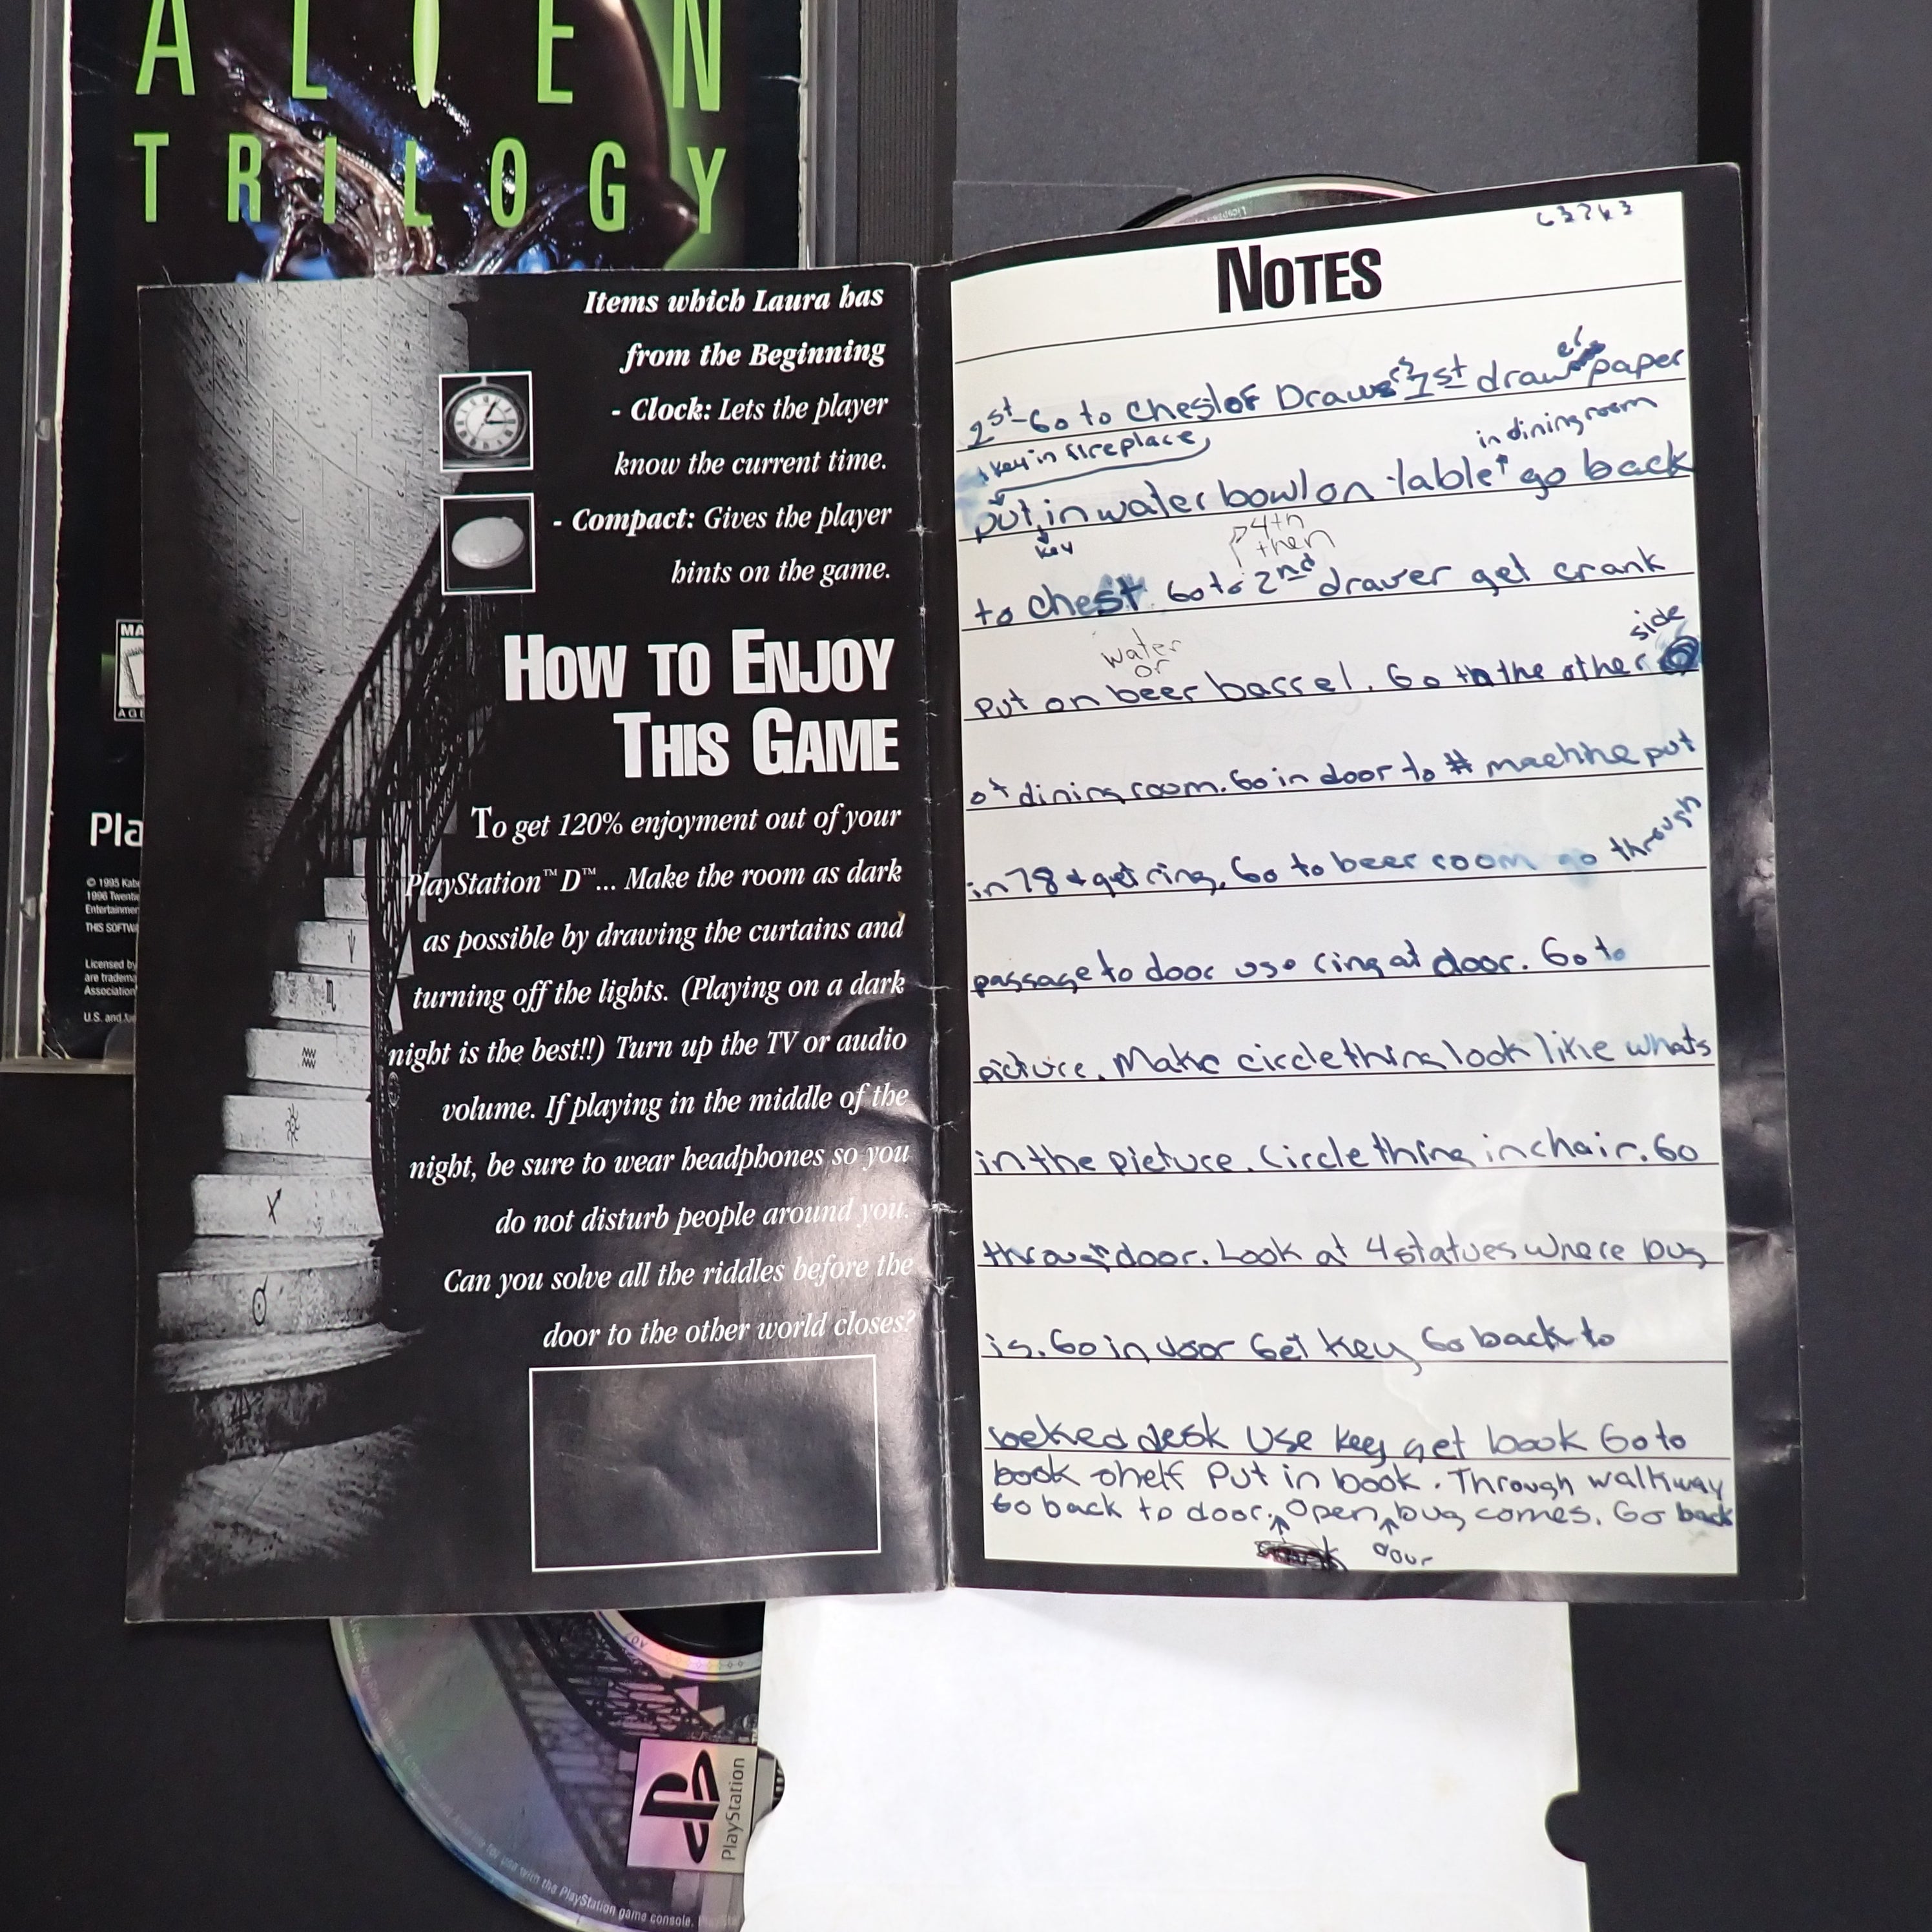 ALIEN
TRILOGY
MA
AGE
Pla
© 1995
1996 Twentie
Entertainmen
THIS SOFTW
Licensed by
are tradema
Association
U.S. and
Items which Laura has
from the Beginning
- Clock: Lets the player
know the current time.
- Compact: Gives the player
hints on the game.
HOW TO ENJOY
THIS GAME
To get 120% enjoyment out of your
PlayStation™ D™... Make the room as dark
as possible by drawing the curtains and
turning off the lights. (Playing on a dark
night is the best!!) Turn up the TV or audio
volume. If playing in the middle of the
night, be sure to wear headphones so you
do not disturb people around you.
Can you solve all the riddles before the
door to the other world closes?
NOTES
er
Go to Chest of Draws 1st draw paper
key in fireplace
in dining room
put in water bowl on table go back
key
4th
then
to chest Go to 2nd drawer get crank
water
or
side
put on beer barrel. Go to the other
of dining room. Go in door to # machine put
through
in 78 + get ring, Go to beer room go
passage to door use ring at door. Go to
picture. Make circle thing look like whats
in the picture. Circle thing in chair. Go
through door. Look at 4 statues where bug
is. Go in door Get key Go back to
locked desk Use key get book Go to
book shelf Put in book. Through walkway
Go back to door. Open bug comes. Go back
door
PlayStation
for use with the PlayStation game console.